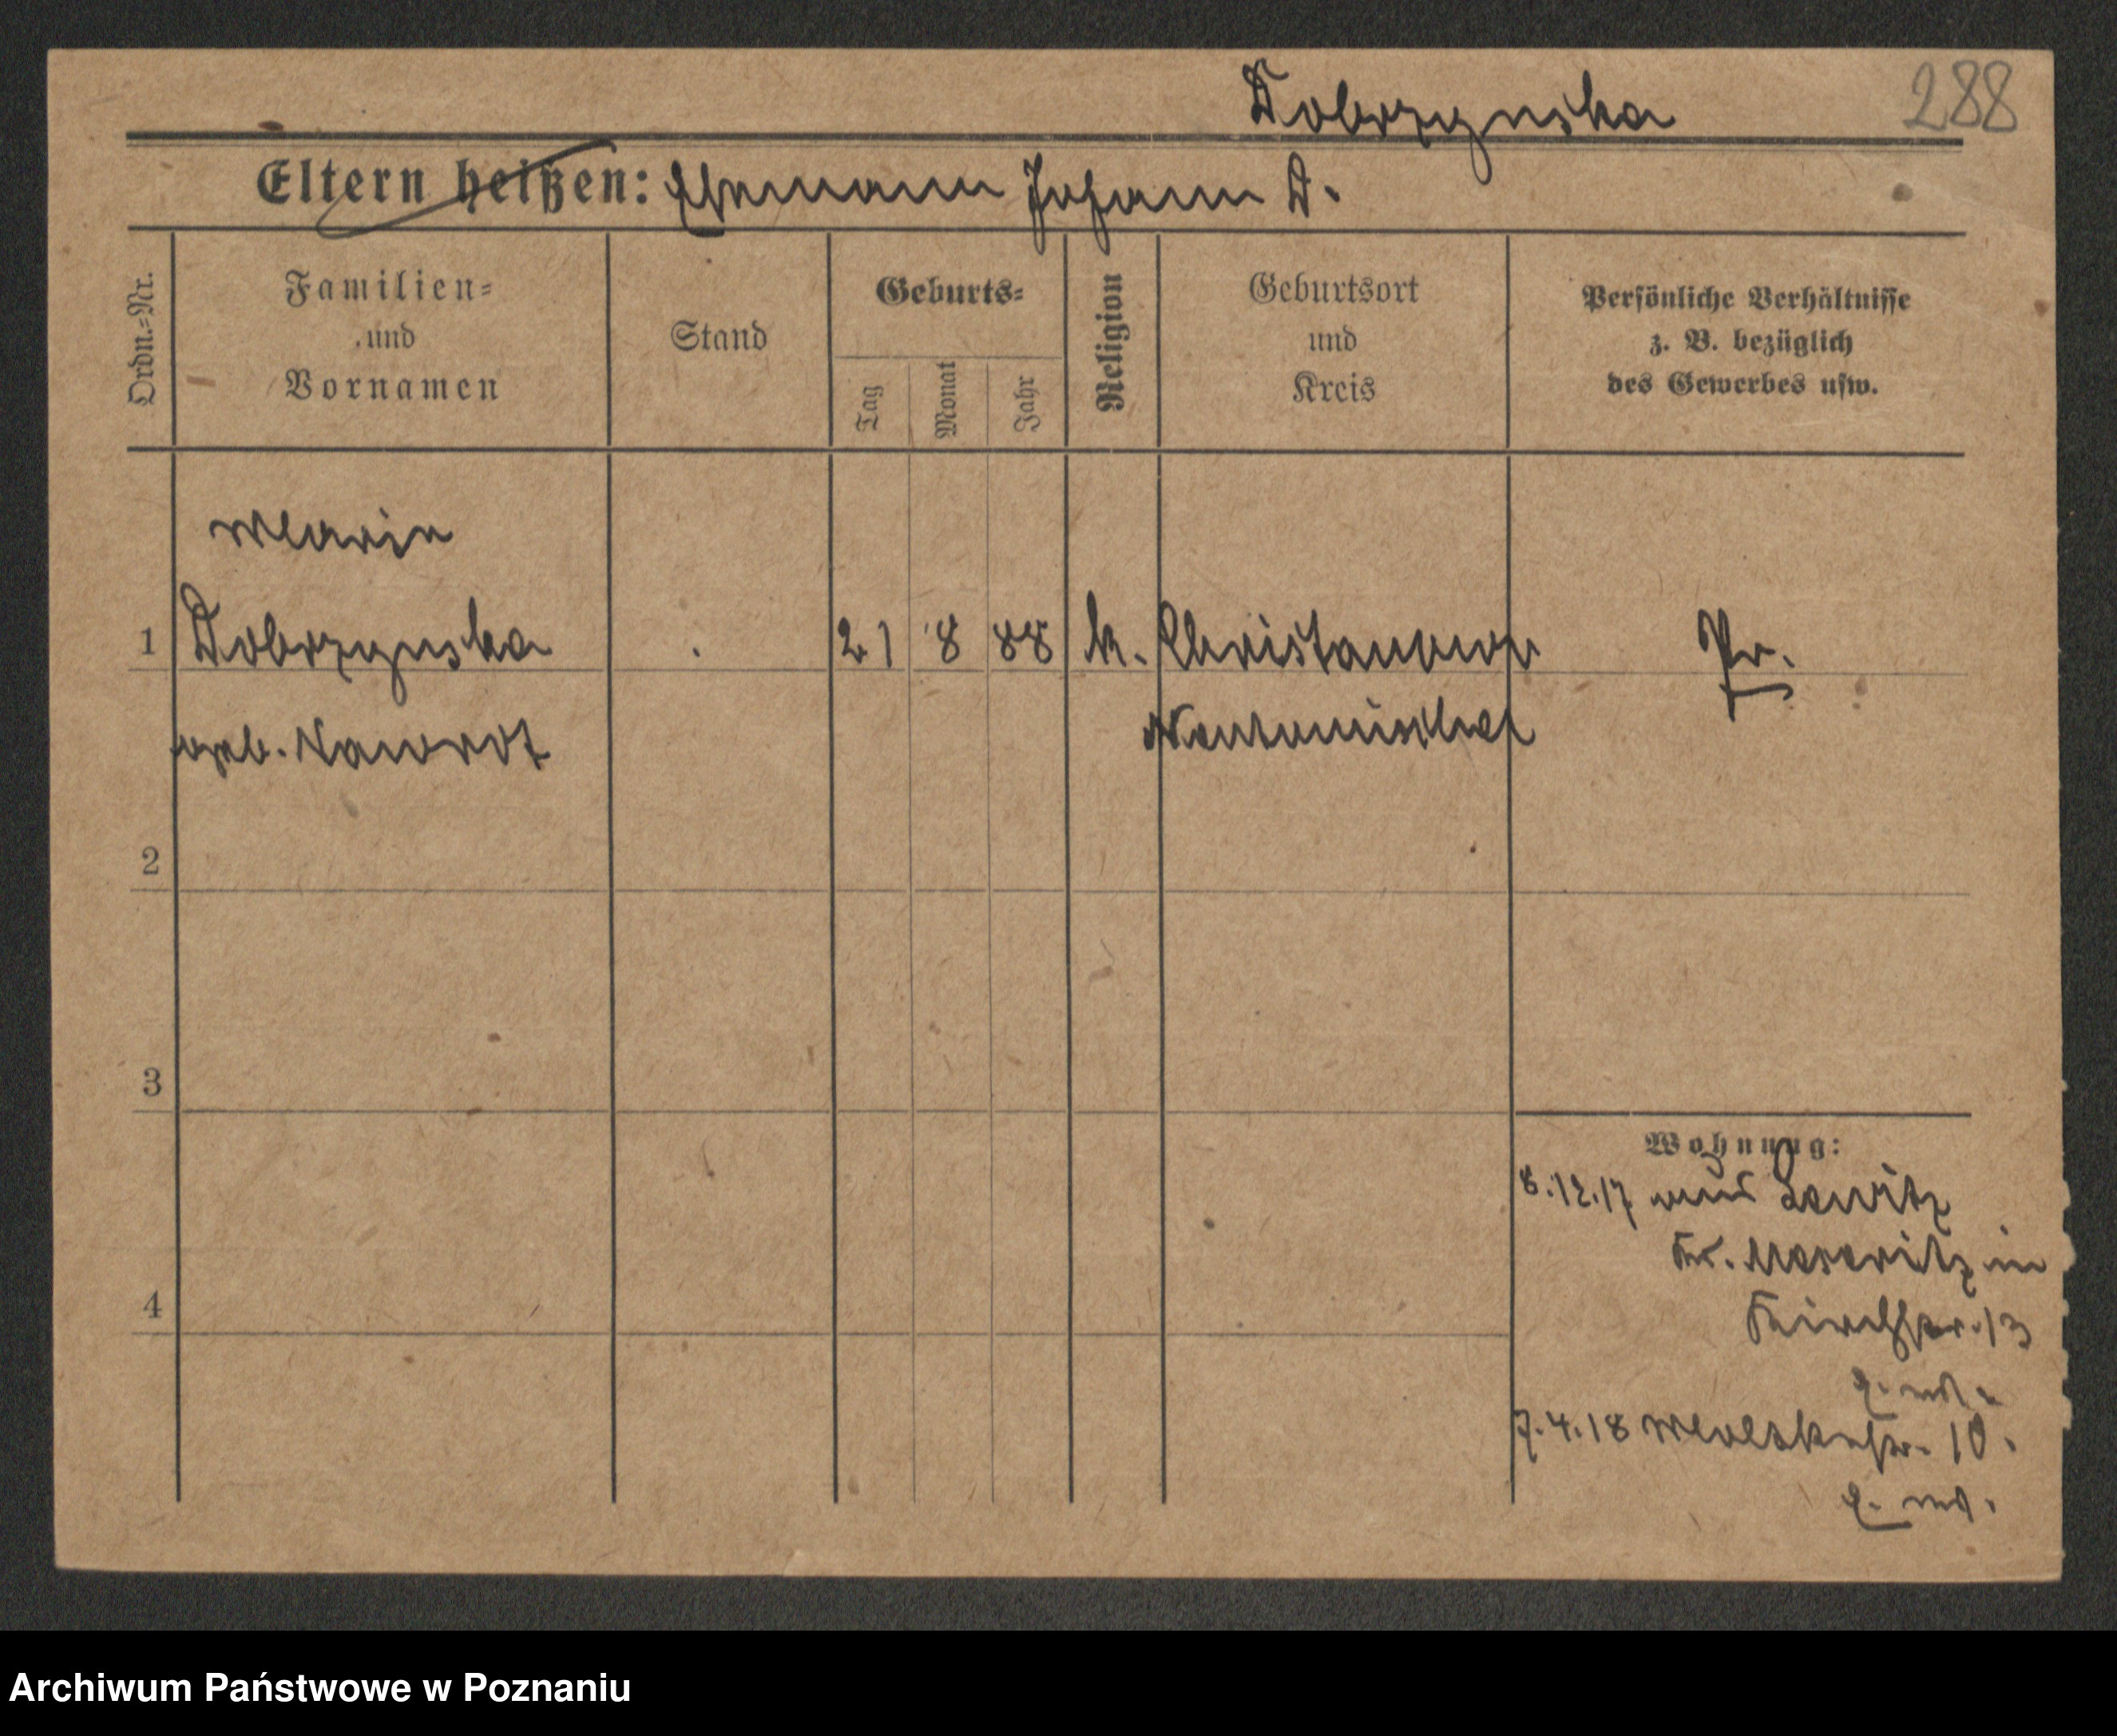 Dobrzynska 288
Eltern heißen: Ehemann Johann D.
Ordn.=Nr. Familien= und Vornamen Stand Geburts= Tag Monat Jahr Religion Geburtsort und Kreis Persönliche Verhältnisse z. B. bezüglich des Gewerbes usw.
Marie
1 Dobrzynska 21 8 88 k. Christanowo Pr.
geb. Nawrot Neutomischel
2
3
Wohnung:
8.12.17 aus Lewitz
Kr. Meseritz in
4 Kirchstr. 13
7.4.18 Moltkestr. 10.
Archiwum Państwowe w Poznaniu